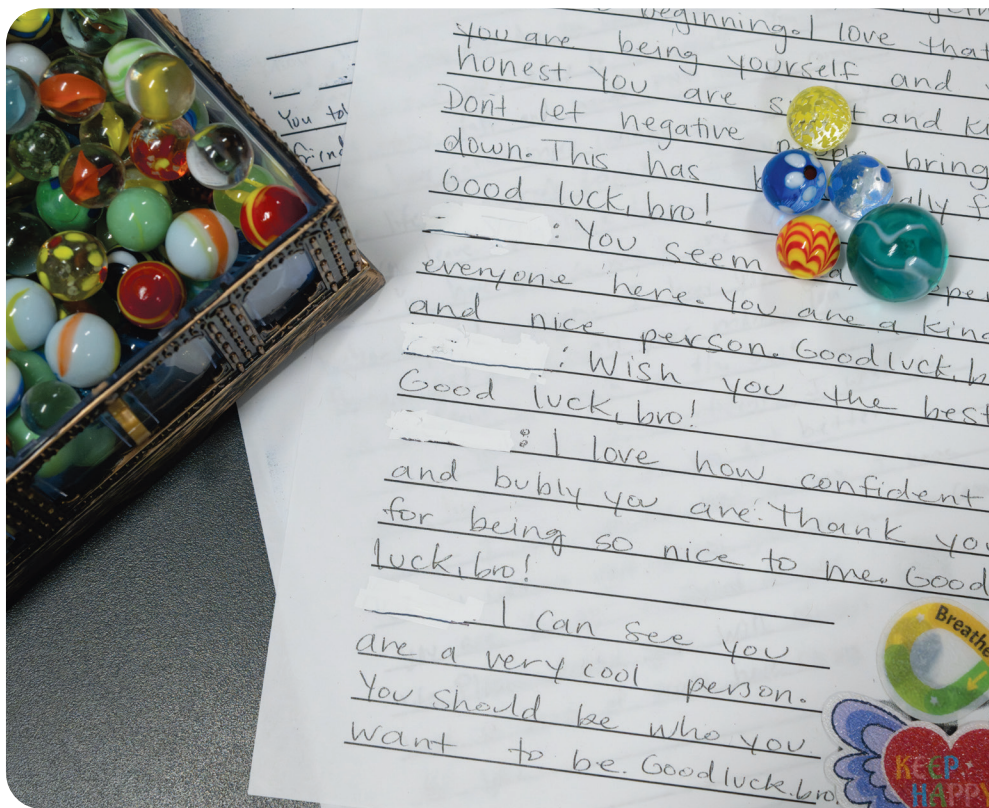 beginning. I love that
you are being yourself and
honest. You are and
Don't let negative people bring
down. This has
Good luck, bro!
: You seem
everyone here. You are a kind
and nice person. Good luck, b
: Wish you the best
Good luck, bro!
: I love how confident
and bubly you are. Thank you
for being so nice to me. Good
luck, bro!
I can see you
are a very cool person.
You should be who you
want to be. Good luck. bro
You tal
Breathe
KEEP
HAPPY